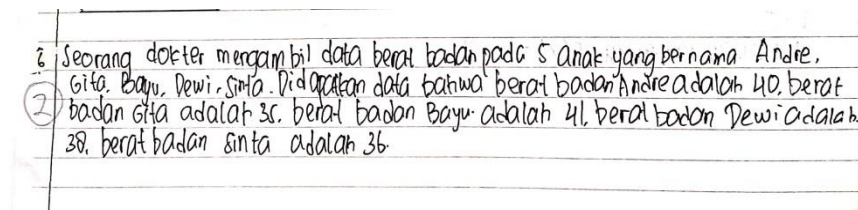 i, Seorang dokter mengambil data berat badan pada 5 anak yang bernama Andre,
Gita, Bayu, Dewi, Sinta. Didapatkan data bahwa berat badan Andre adalah 40, berat
2 badan Gita adalah 35. berat badan Bayu adalah 41, berat badan Dewi adalah
38, berat badan Sinta adalah 36.